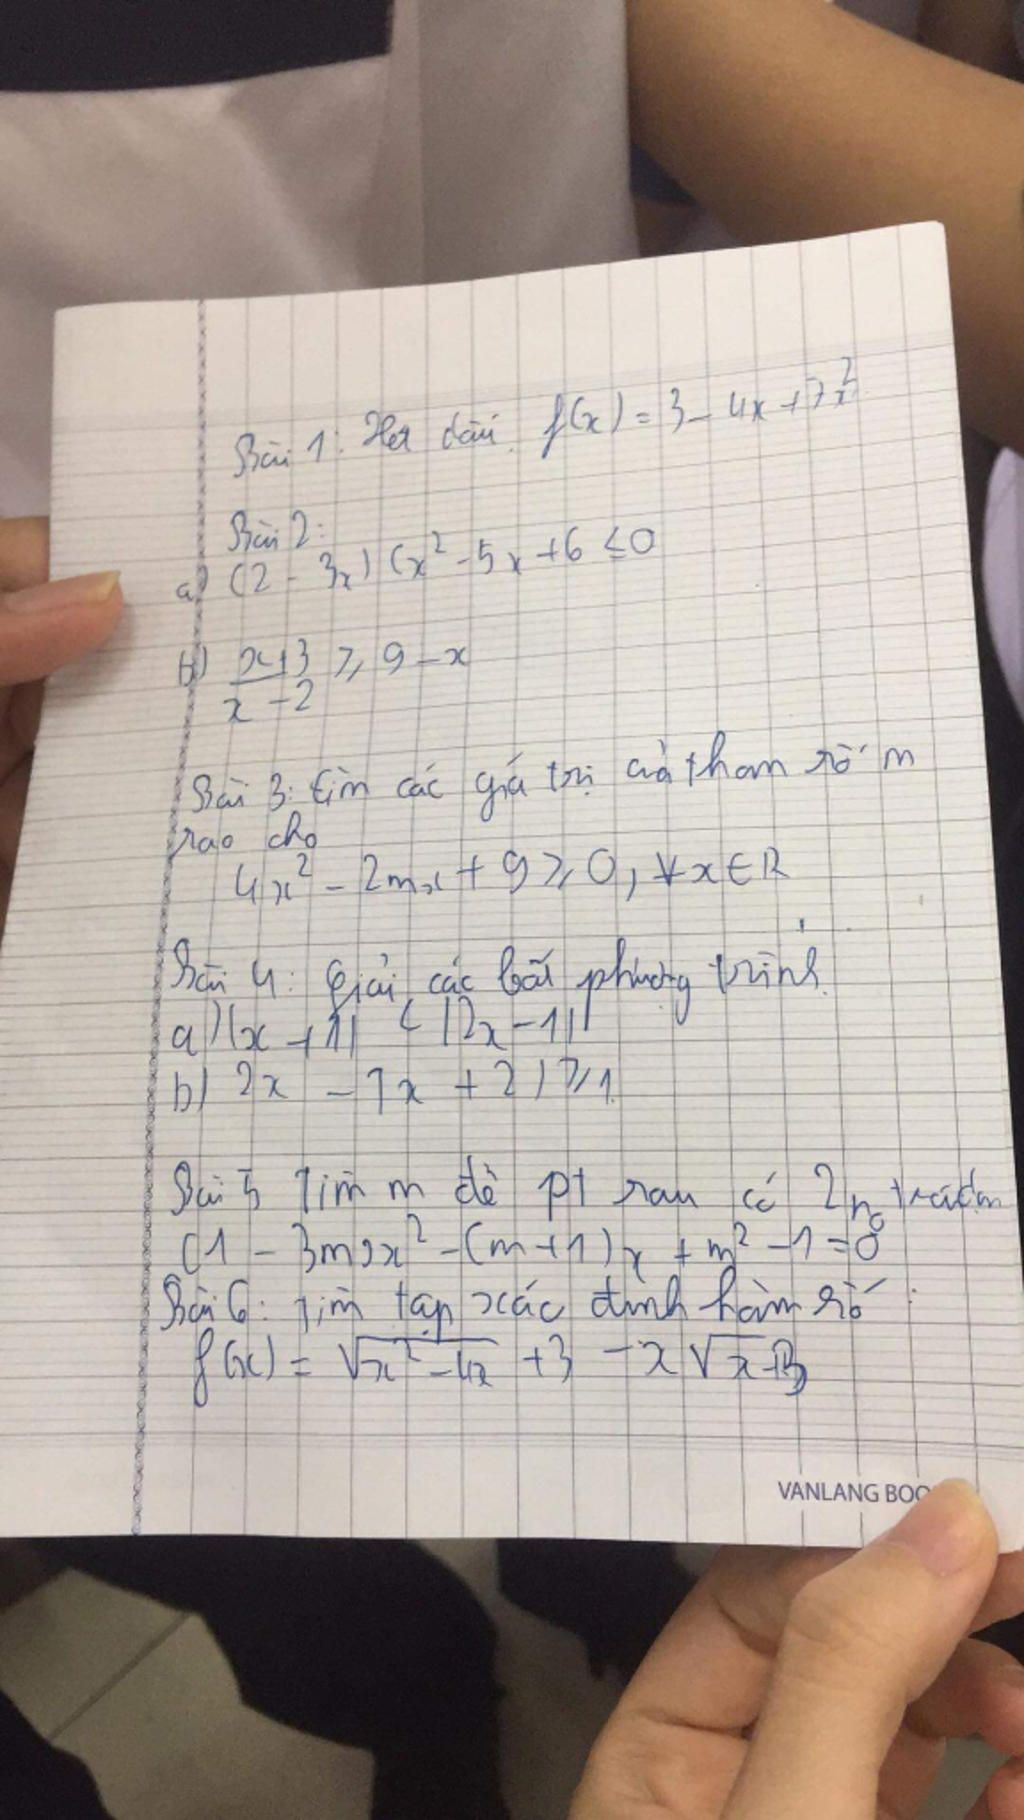 Bài 1: Xét dấu f(x) = 3 - 4x + 7x²
Bài 2:
a) (2 - 3x) (x² - 5x + 6 ≤ 0
b) x+3 / x-2 ≥ 9 - x
Bài 3: Tìm các giá trị của tham số m
sao cho
4x² - 2mx + 9 ≥ 0, ∀x ∈ R
Bài 4: Giải các bất phương trình
a) |x + 1| < |2x - 1|
b) 2x - 7x + 2) ≥ 1
Bài 5 Tìm m để pt sau có 2 no trái dấu
(1 - 3m)x² - (m+1)x + m² - 1 = 0
Bài 6: Tìm tập xác định hàm số:
f(x) = √x² - 4x + 3 - x√x+3
VANLANG